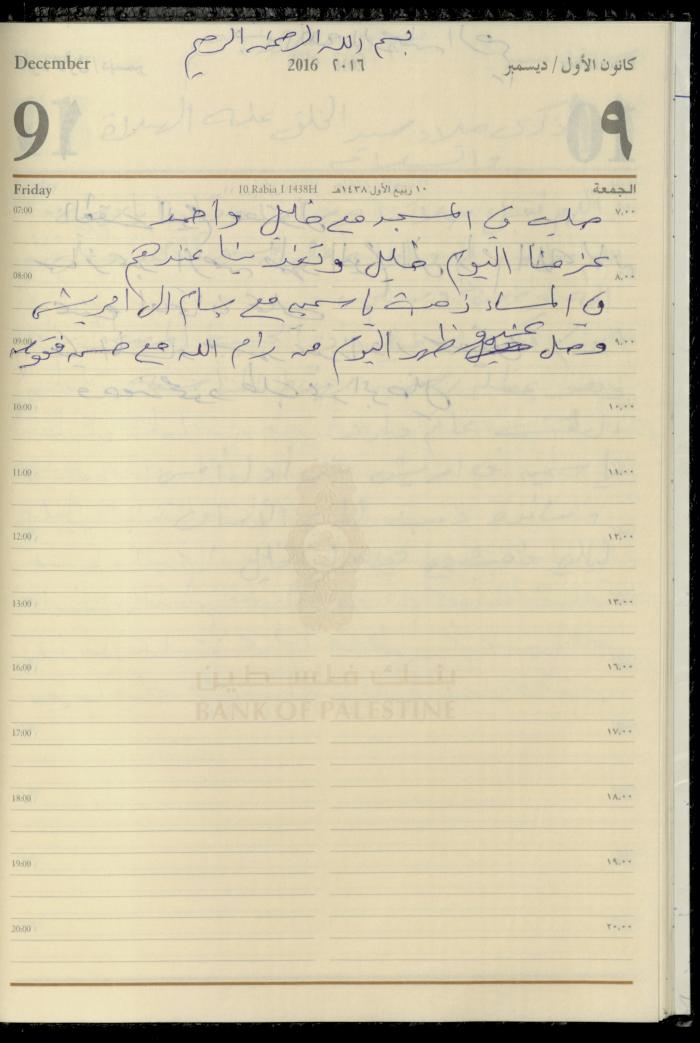 بسم الله الرحمن الرحيم
December 2016 ٢٠١٦ كانون الأول / ديسمبر
9 ٩
Friday 10 Rabia I 1438H ١٠ ربيع الأول ١٤٣٨هـ الجمعة
07:00 صليت في المسجد مع خليل واحمد ٧,٠٠
عزمنا اليوم خليل وتغدينا عندهم
08:00 ٨,٠٠
في المساء ذهبت ياسمين مع بسام الى
09:00 وصل ظهر اليوم من رام الله مع حسن ٩,٠٠
10:00 ١٠,٠٠
11:00 ١١,٠٠
12:00 ١٢,٠٠
13:00 ١٣,٠٠
16:00 ١٦,٠٠
بنك فلسطين
BANK OF PALESTINE
17:00 ١٧,٠٠
18:00 ١٨,٠٠
19:00 ١٩,٠٠
20:00 ٢٠,٠٠